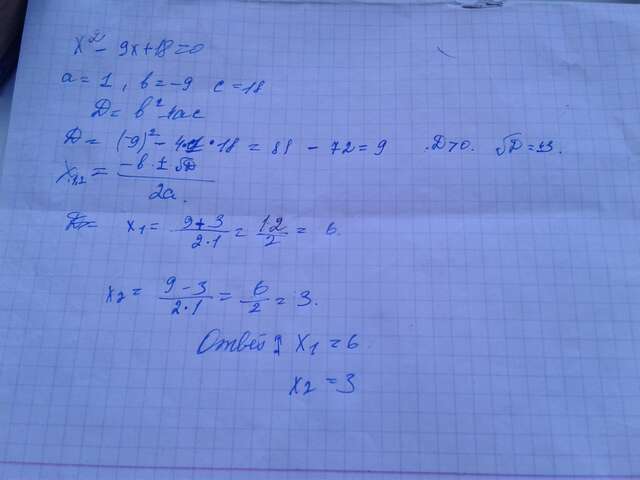 x² - 9x+18=0
a = 1, b = -9 c = 18
D = b² - 4ac
D = (-9)² - 4·1·18 = 81 - 72 = 9 . D>0. √D = ±3.
x₁,₂ = (-b ± √D) / 2a.
x₁ = (9+3) / (2·1) = 12/2 = 6.
x₂ = (9-3) / (2·1) = 6/2 = 3.
Ответ: x₁ = 6.
x₂ = 3